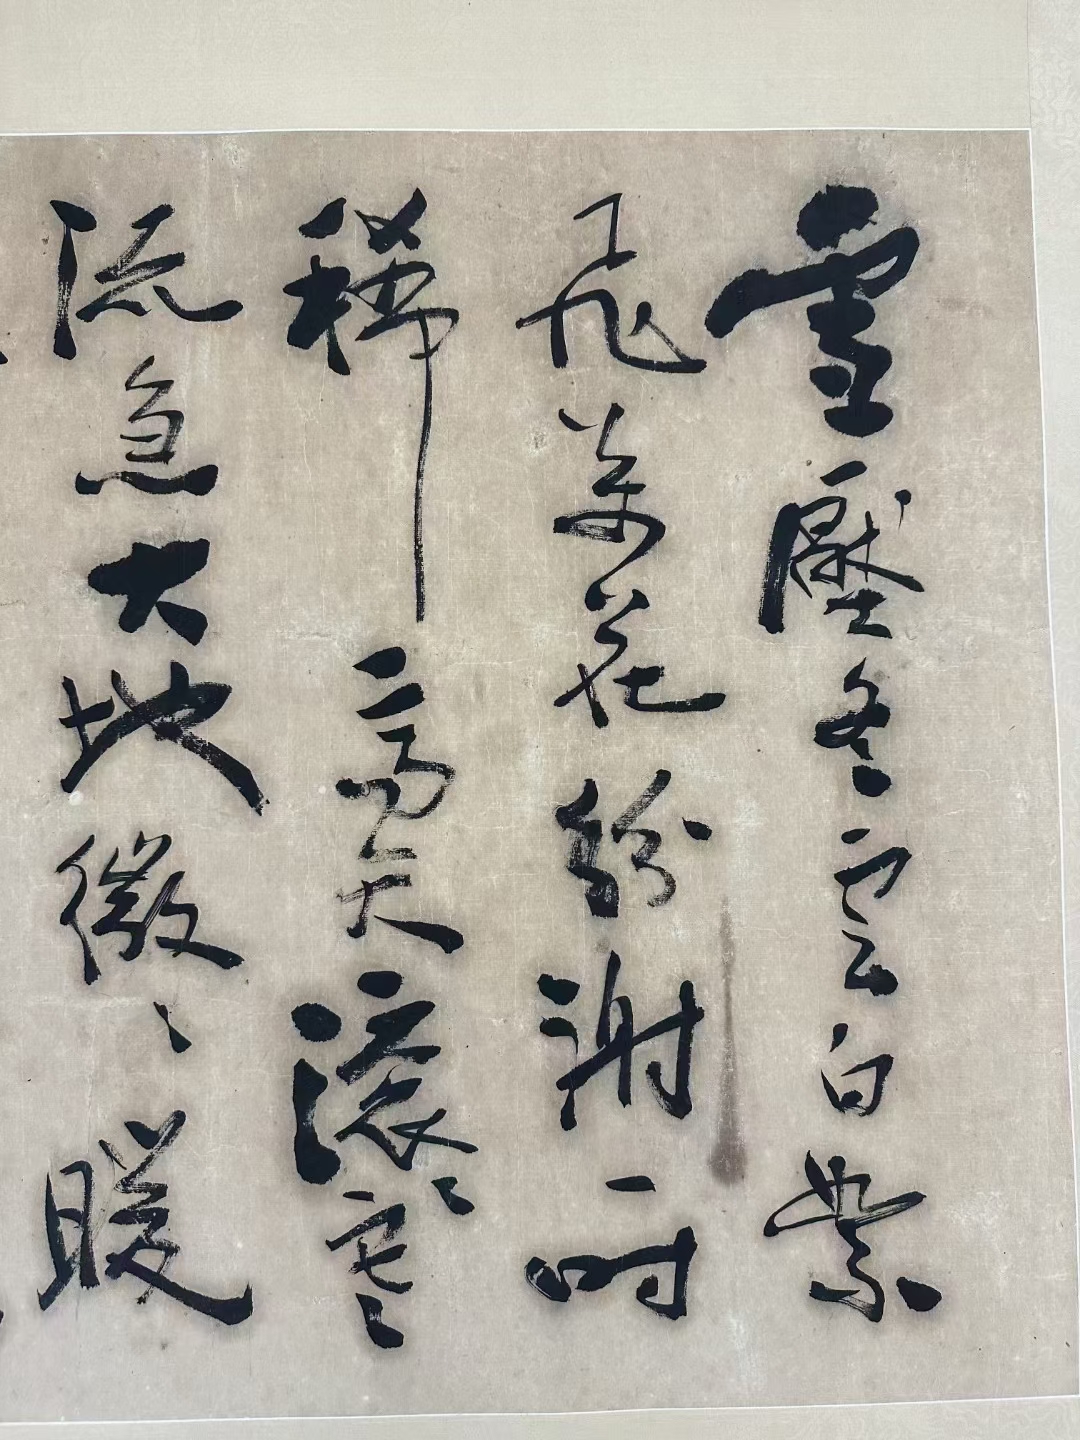 雪壓冬雲白絮
飛萬花紛謝一时
稀高天滚々寒
流急大地微々暖